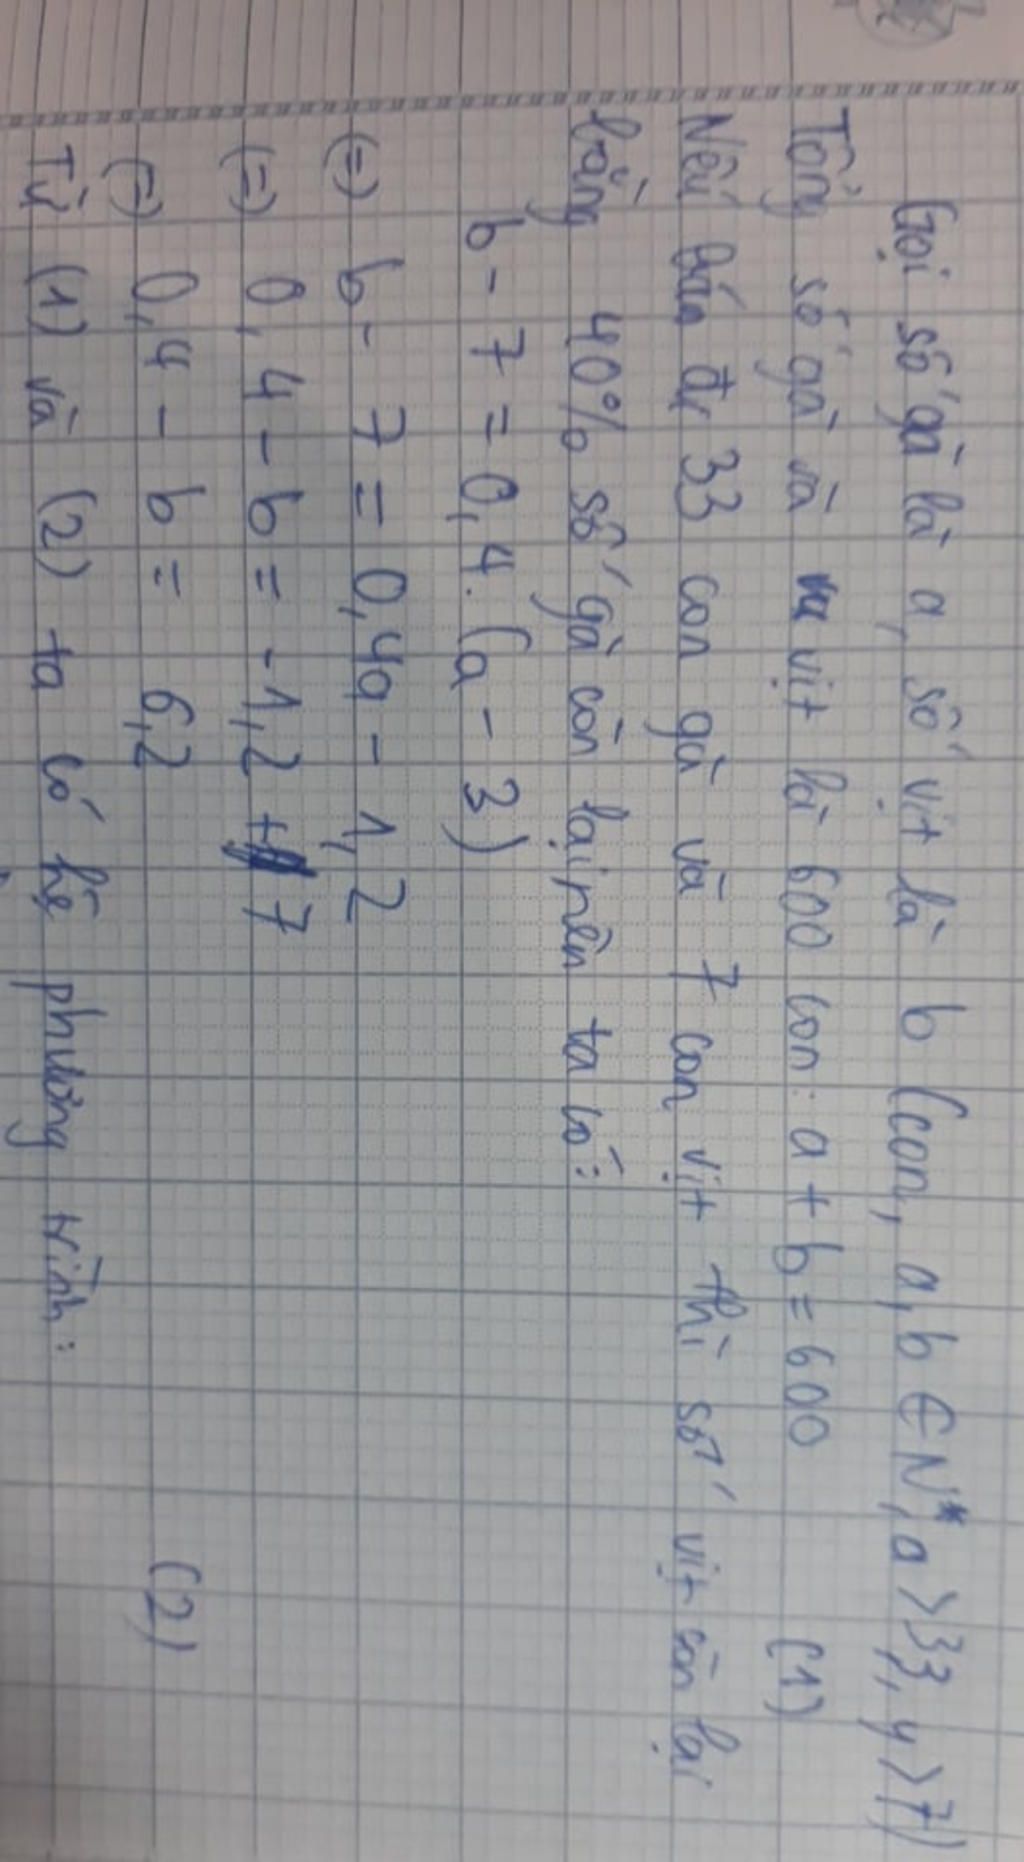 Gọi số gà là a, số vịt là b (con, a, b ∈ N*, a > 33, y > 7)
Tổng số gà và vịt là 600 con: a + b = 600 (1)
Nếu bán đi 33 con gà và 7 con vịt thì số vịt còn lại
bằng 40% số gà còn lại nên ta có:
b - 7 = 0,4. (a - 3)
(=) b - 7 = 0,4a - 1,2
(=) 0,4 - b = -1,2 + 7
(=) 0,4 - b = 6,2 (2)
Từ (1) và (2) ta có hệ phương trình: